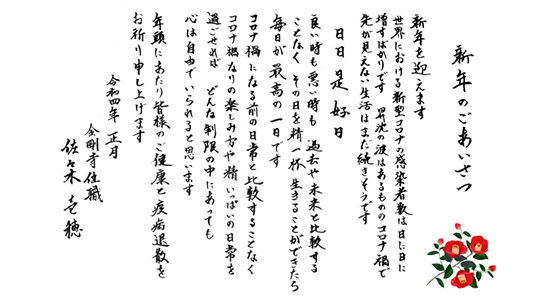 新年のごあいさつ
新年を迎えます
世界における新型コロナの感染者数は日に日に
増すばかりです 昇沈の波はあるもののコロナ禍で
先が見えない生活はまだ続きそうです
日日是好日
良い時も悪い時も 過去や未来と比較する
ことなく その日を精一杯生きることができたら
毎日が最高の一日です
コロナ禍になる前の日常と比較することなく
コロナ禍なりの楽しみ方や精いっぱいの日常を
過ごせれば どんな制限の中にあっても
心は自由でいられると思います
年頭にあたり皆様のご健康と疫病退散を
お祈り申し上げます
令和四年 正月
金剛寺住職
佐々木壱穂